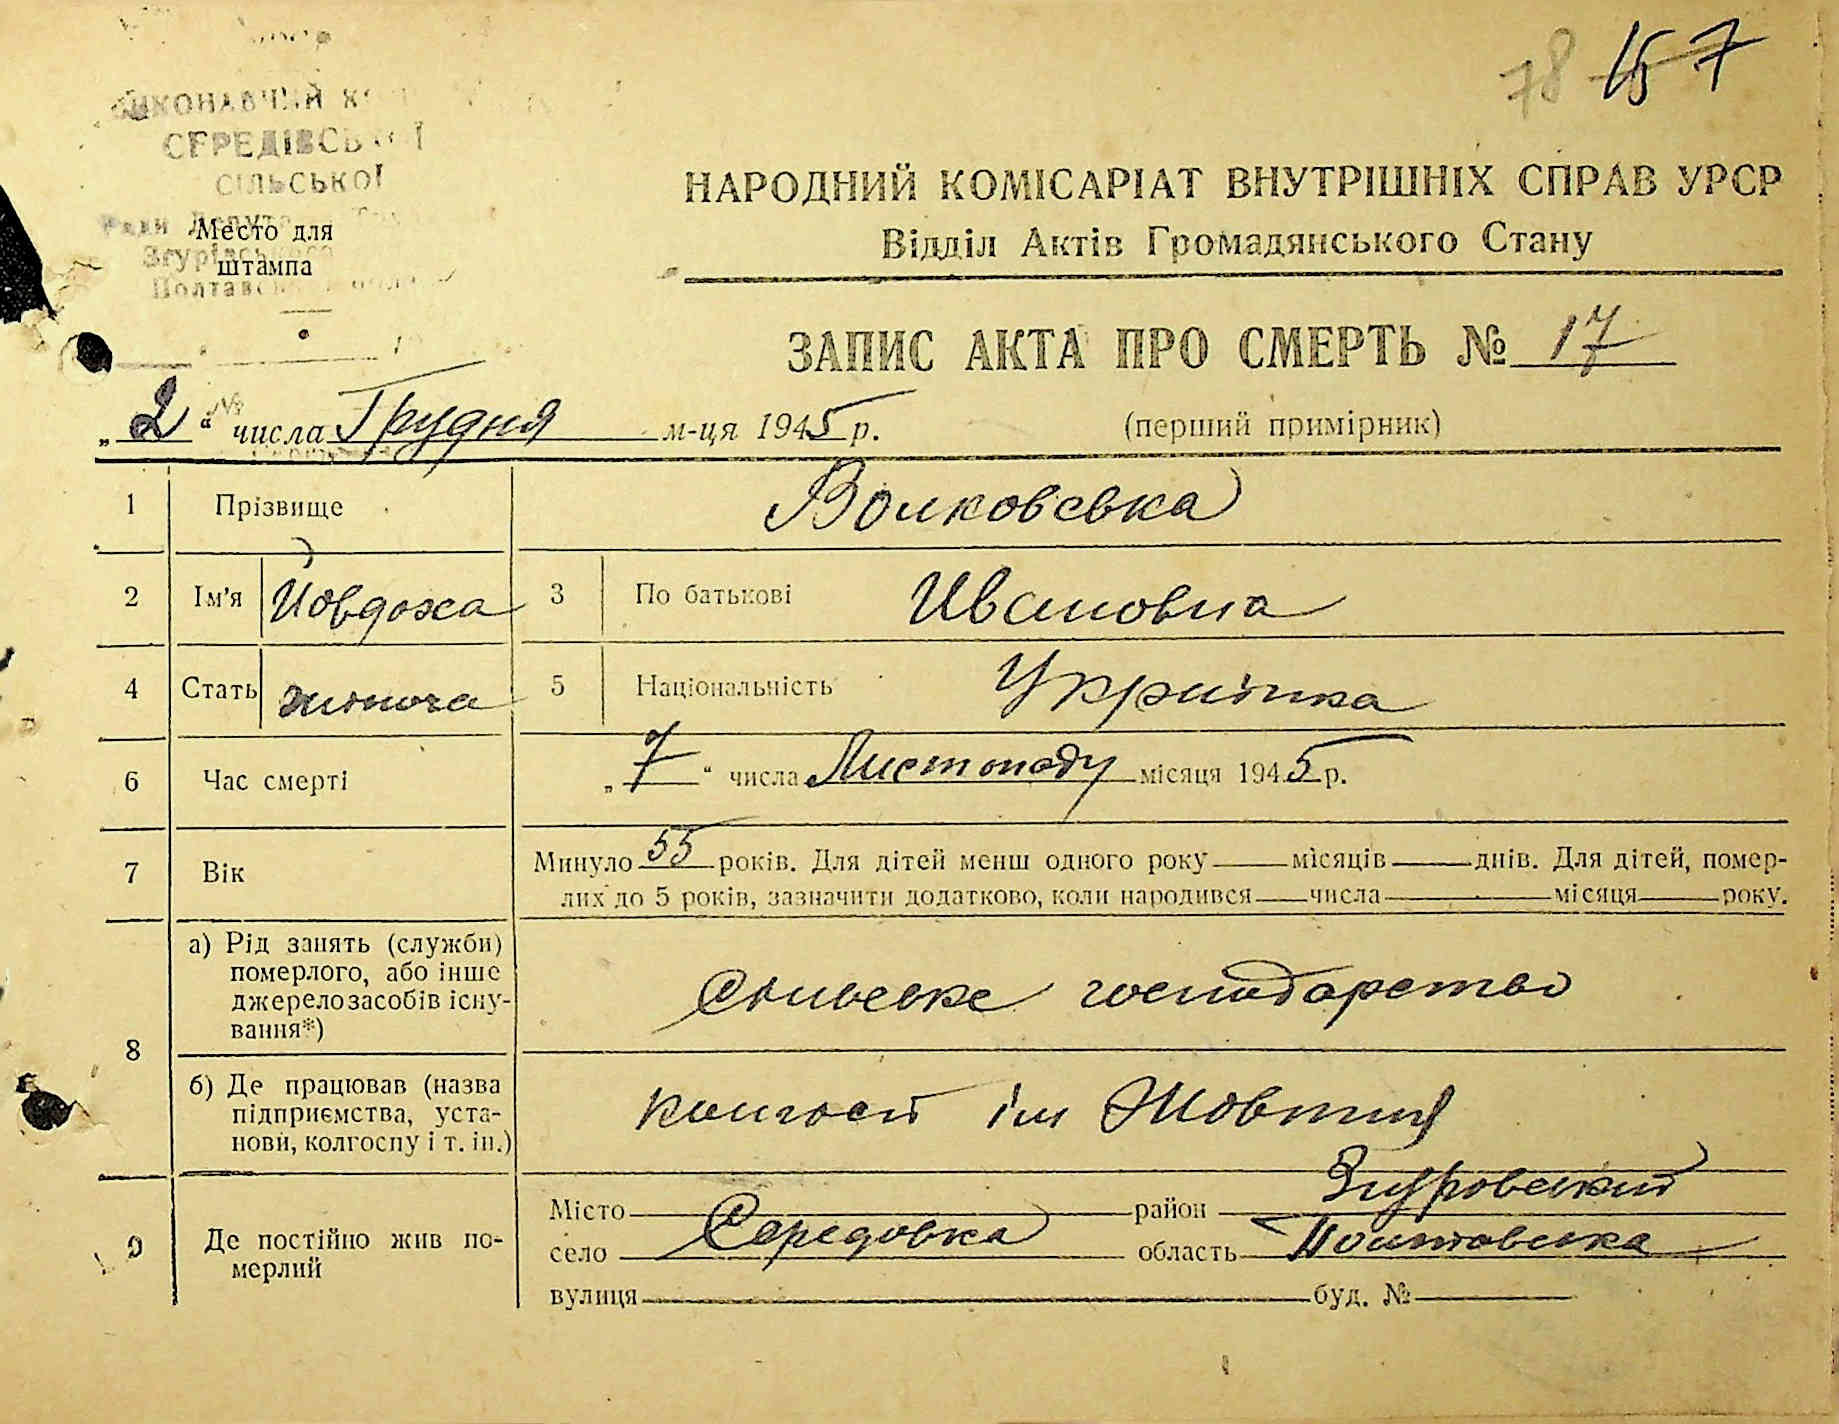 78 157
ВИКОНАВЧИЙ
СЕРЕДІВСЬКОЇ
СІЛЬСЬКОЇ
Ради
Згурівського
Полтавської
Место для
штампа
НАРОДНИЙ КОМІСАРІАТ ВНУТРІШНІХ СПРАВ УРСР
Відділ Актів Громадянського Стану
ЗАПИС АКТА ПРО СМЕРТЬ № 17
„2“ числа Грудня м-ця 1945 р. (перший примірник)
1 Прізвище Волковська
2 Ім'я Йовдоха 3 По батькові Ивановна
4 Стать жіноча 5 Національність Українка
6 Час смерті „7“ числа Листопаду місяця 1945 р.
7 Вік Минуло 55 років. Для дітей менш одного року місяців днів. Для дітей, помер-
лих до 5 років, зазначити додатково, коли народився числа місяця року.
8 а) Рід занять (служби)
померлого, або інше
джерело засобів існу-
вання*) Сільське господарство
б) Де працював (назва
підприємства, уста-
нови, колгоспу і т. ін.) колгосп ім Жовтня
9 Де постійно жив по-
мерлий
Місто район Згуровський
село Середовка область Полтавська
вулиця буд. №